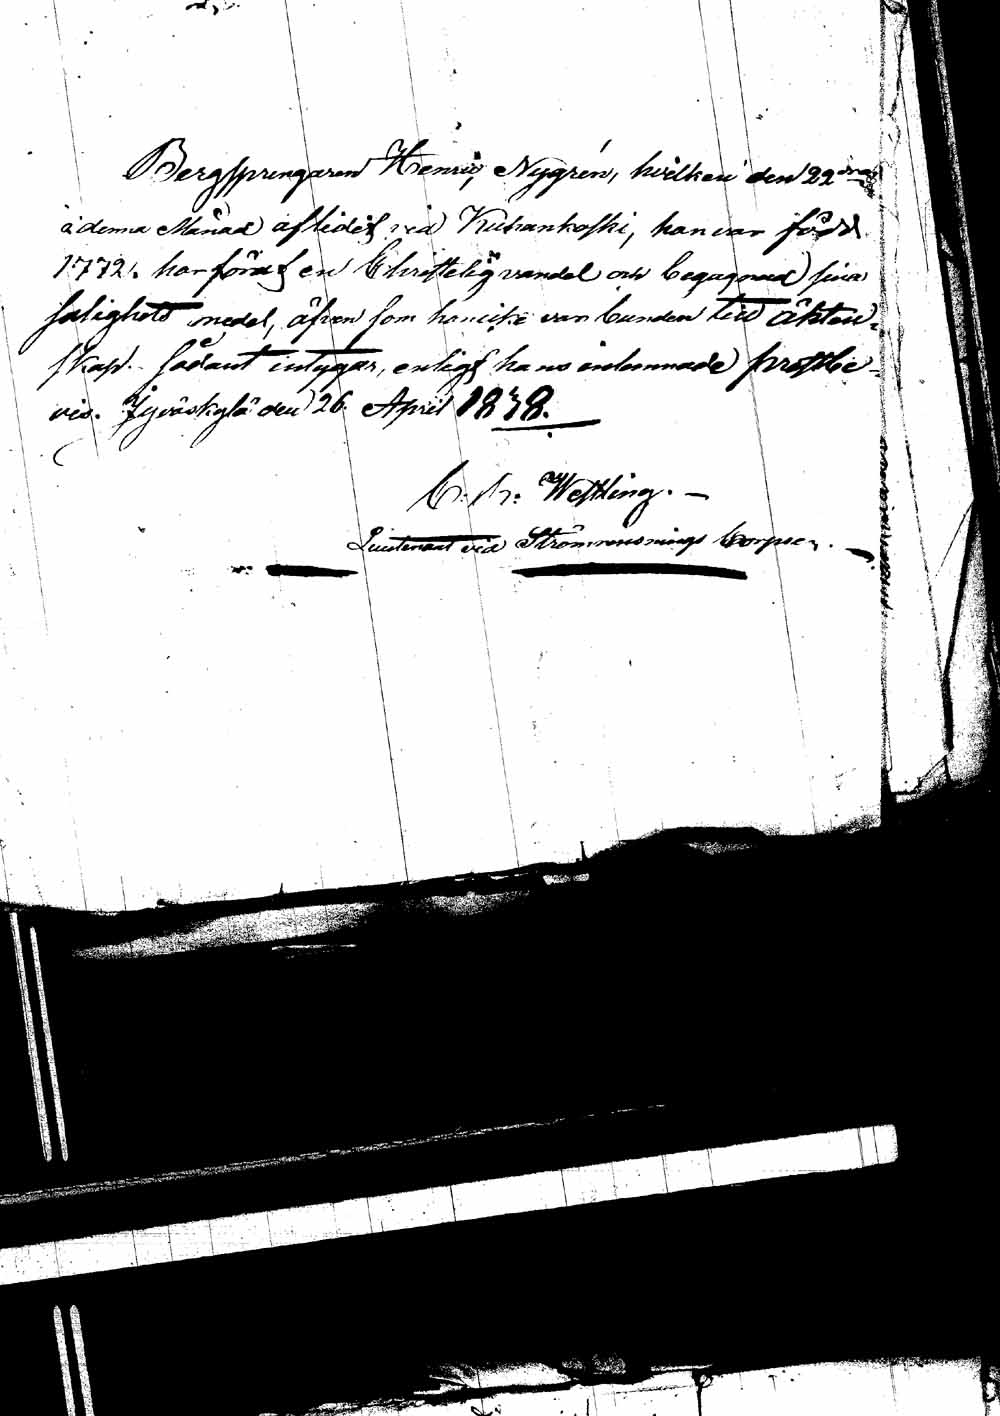 Bergsprengaren Henric Nygrén, hvilken den 22dra
i denna Månad aflidit vid Kuhankoski, han var född
1772. har fördt en Christelig vandel och begagnad sina
salighets medel, äfven som han icke var bunden vid äkten-
skap. Sådant intygar, enligt hans inlemnade prestbe-
vis. Jyväskylä den 26. April 1838.
Westling.
Lieutenant vid Strömrensnings Corpsen.